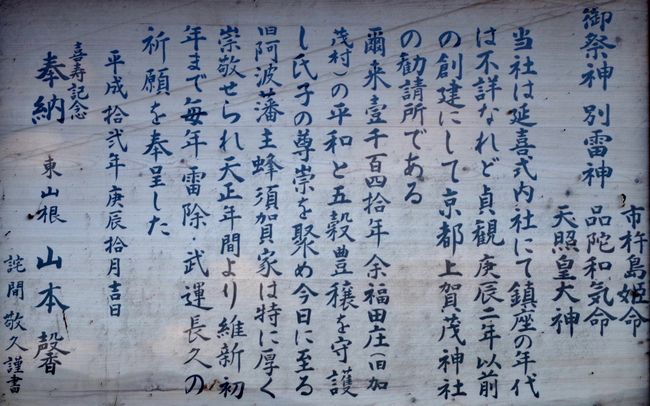 御祭神 別雷神
市杵島姫命
品陀和気命
天照皇大神
当社は延喜式内社にて鎮座の年代
は不詳なれど貞観庚辰二年以前
の創建にして京都上賀茂神社
の勧請所である
爾来壹千百四拾年余福田庄(旧加
茂村)の平和と五穀豊穣を守護
し氏子の尊崇を聚め今日に至る
旧阿波藩主蜂須賀家は特に厚く
崇敬せられ天正年間より維新初
年まで毎年雷除・武運長久の
祈願を奉呈した
平成拾弐年庚辰拾月吉日
喜寿記念
奉納 東山根 山本馨
詫間敬久謹書